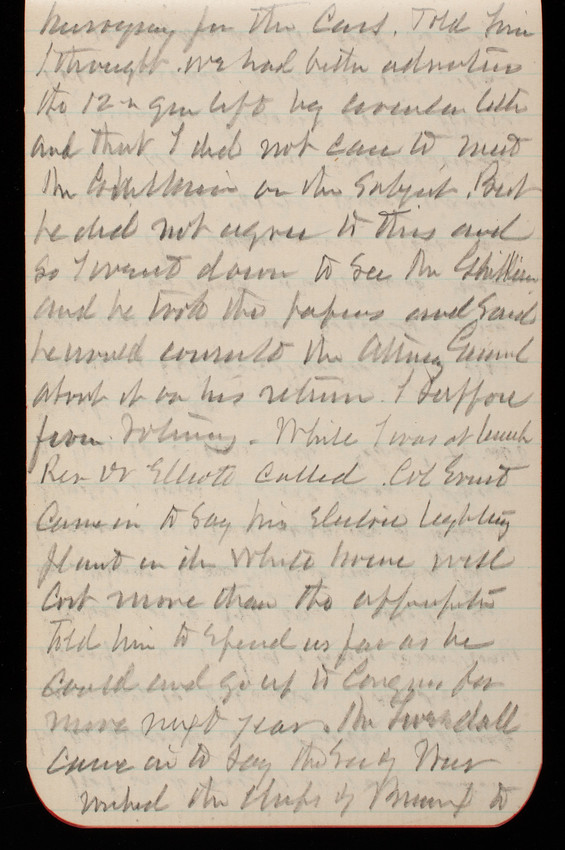 for the Cars. Told him
I thought we had better advertise
the 12 in gun left by letter
and that I did not care to meet
the on the subject. But
he did not agree to this and
so I went down to see the
and he took the papers and said
he would consult the Attorney General
about it on his return. I
from. While I was at lunch
Rev Dr Elliott called. Col Ernst
came in to say his Electric Lighting
plant in the White House will
cost more than the
Told him to spend as far as he
could and go up to Congress for
more next year. Mr
came in to say the Secy War
wished the Chiefs of to